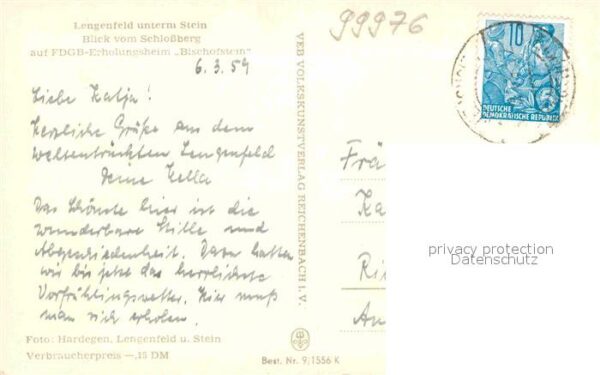 Lengenfeld unterm Stein
Blick vom Schloßberg
auf FDGB-Erholungsheim „Bischofstein"
99976
6.3.59
Liebe Katja!
Herzliche Grüße aus dem
weltentrückten Lengenfeld
Deine Hella
Das Schönste hier ist die
wunderbare Stille und
Abgeschiedenheit. Dazu hatten
wir bis jetzt das herrlichste
Vorfrühlingswetter. Hier muß
man sich erholen.
Foto: Hardegen, Lengenfeld u. Stein
Verbraucherpreis —,15 DM
VEB VOLKSKUNSTVERLAG REICHENBACH i. V.
Best. Nr. 9/1556 K
10
DEUTSCHE
DEMOKRATISCHE REPUBLIK
Frä
Ka
Ri
An
privacy protection
Datenschutz